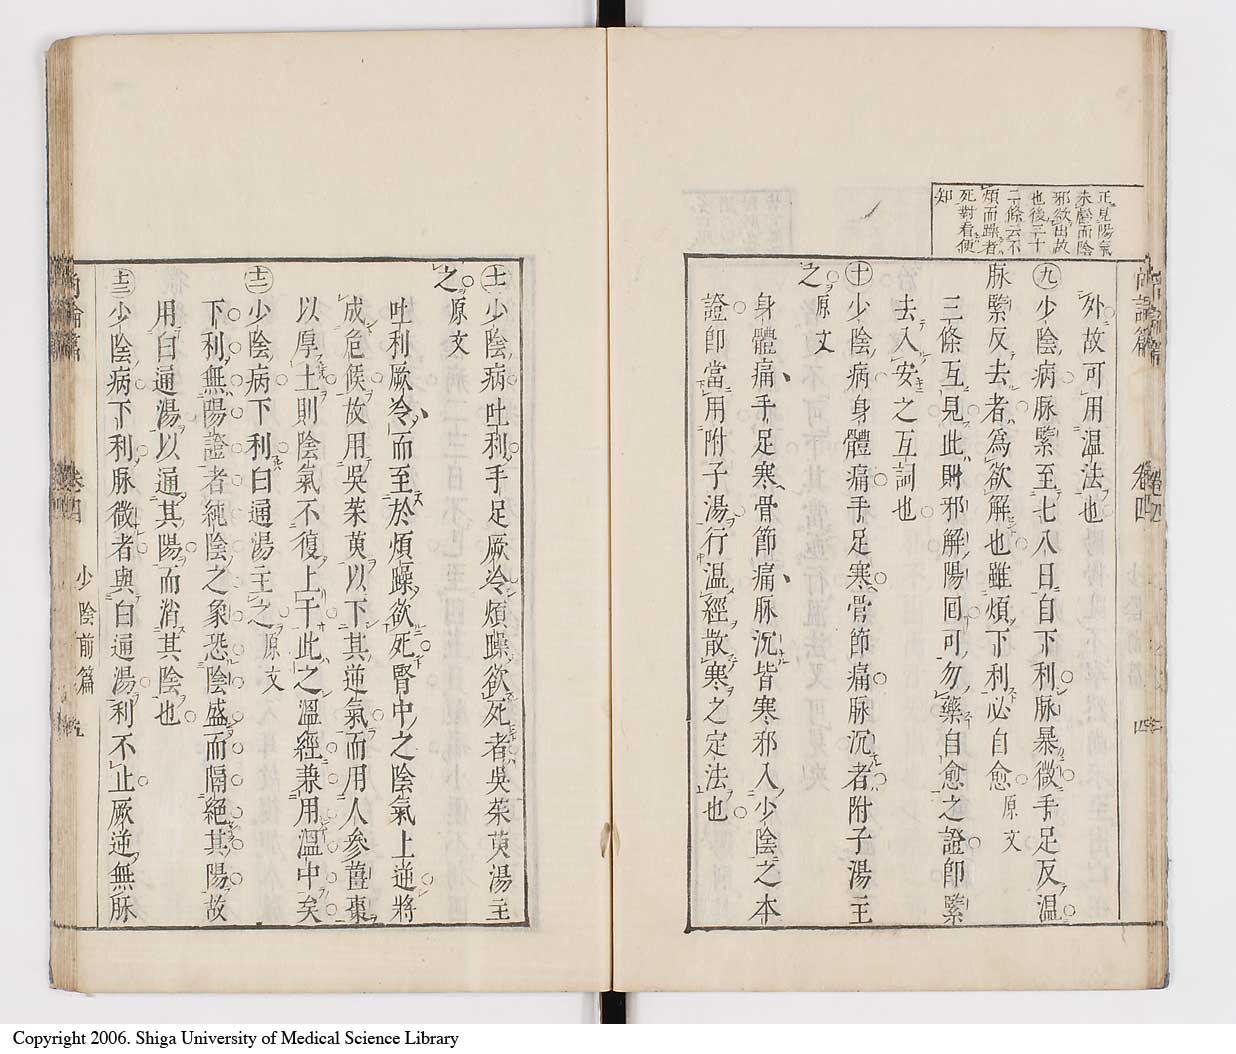 正見陽氣
未離而陰
邪欲出故
也後三十
二條云不
煩而躁者
死對看便
知
外故可用温法也
㊈少陰病脉緊至七八日自下利脉暴微手足反温
脉緊反去者爲欲解也雖煩下利必自愈原文
三條互見此則邪解陽回可勿藥自愈之證即緊
去入安之互詞也
㊉少陰病身體痛手足寒骨節痛脉沉者附子湯主
之原文
身體痛手足寒骨節痛脉沉皆寒邪入少陰之本
證即當用附子湯行温經散寒之定法也
尚論篇
卷四
四
⑪少陰病吐利手足厥冷煩躁欲死者吳茱萸湯主
之原文
吐利厥冷而至於煩躁欲死腎中之陰氣上逆將
成危候故用吳茱萸以下其逆氣而用人參薑棗
以厚土則陰氣不復上干此之溫經兼用溫中矣
⑫少陰病下利白通湯主之原文
下利無陽證者純陰之象恐陰盛而隔絕其陽故
用白通湯以通其陽而消其陰也
⑬少陰病下利脉微者與白通湯利不止厥逆無脉
尚論篇
卷四
少陰前篇
五
Copyright 2006. Shiga University of Medical Science Library